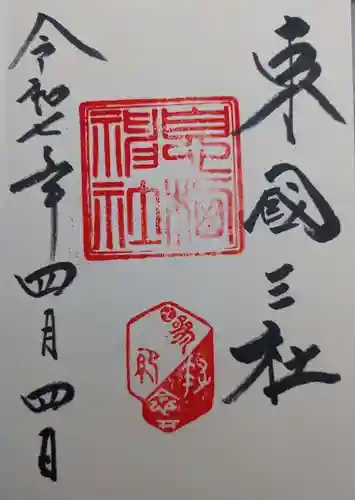 東國三社
息栖
神社
参拝
記念
令和七年四月四日